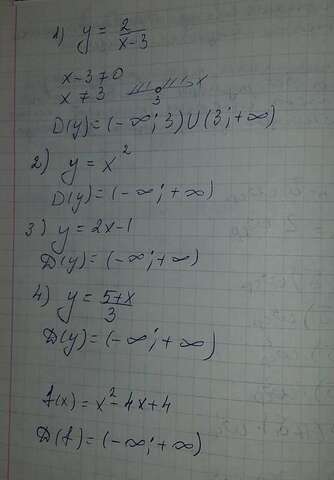 1) y = 2/(x-3)
x-3≠0
x≠3
3 x
D(y)=(-∞; 3)∪(3; +∞)
2) y = x²
D(y)=(-∞; +∞)
3) y = 2x-1
D(y)=(-∞; +∞)
4) y = (5+x)/3
D(y)=(-∞; +∞)
f(x)=x²-4x+4
D(f)=(-∞; +∞)